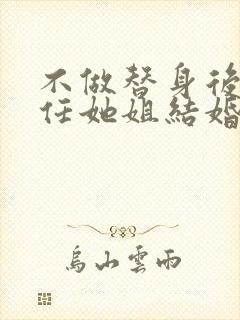 不做替身後
任她姐結婚
烏山雲雨